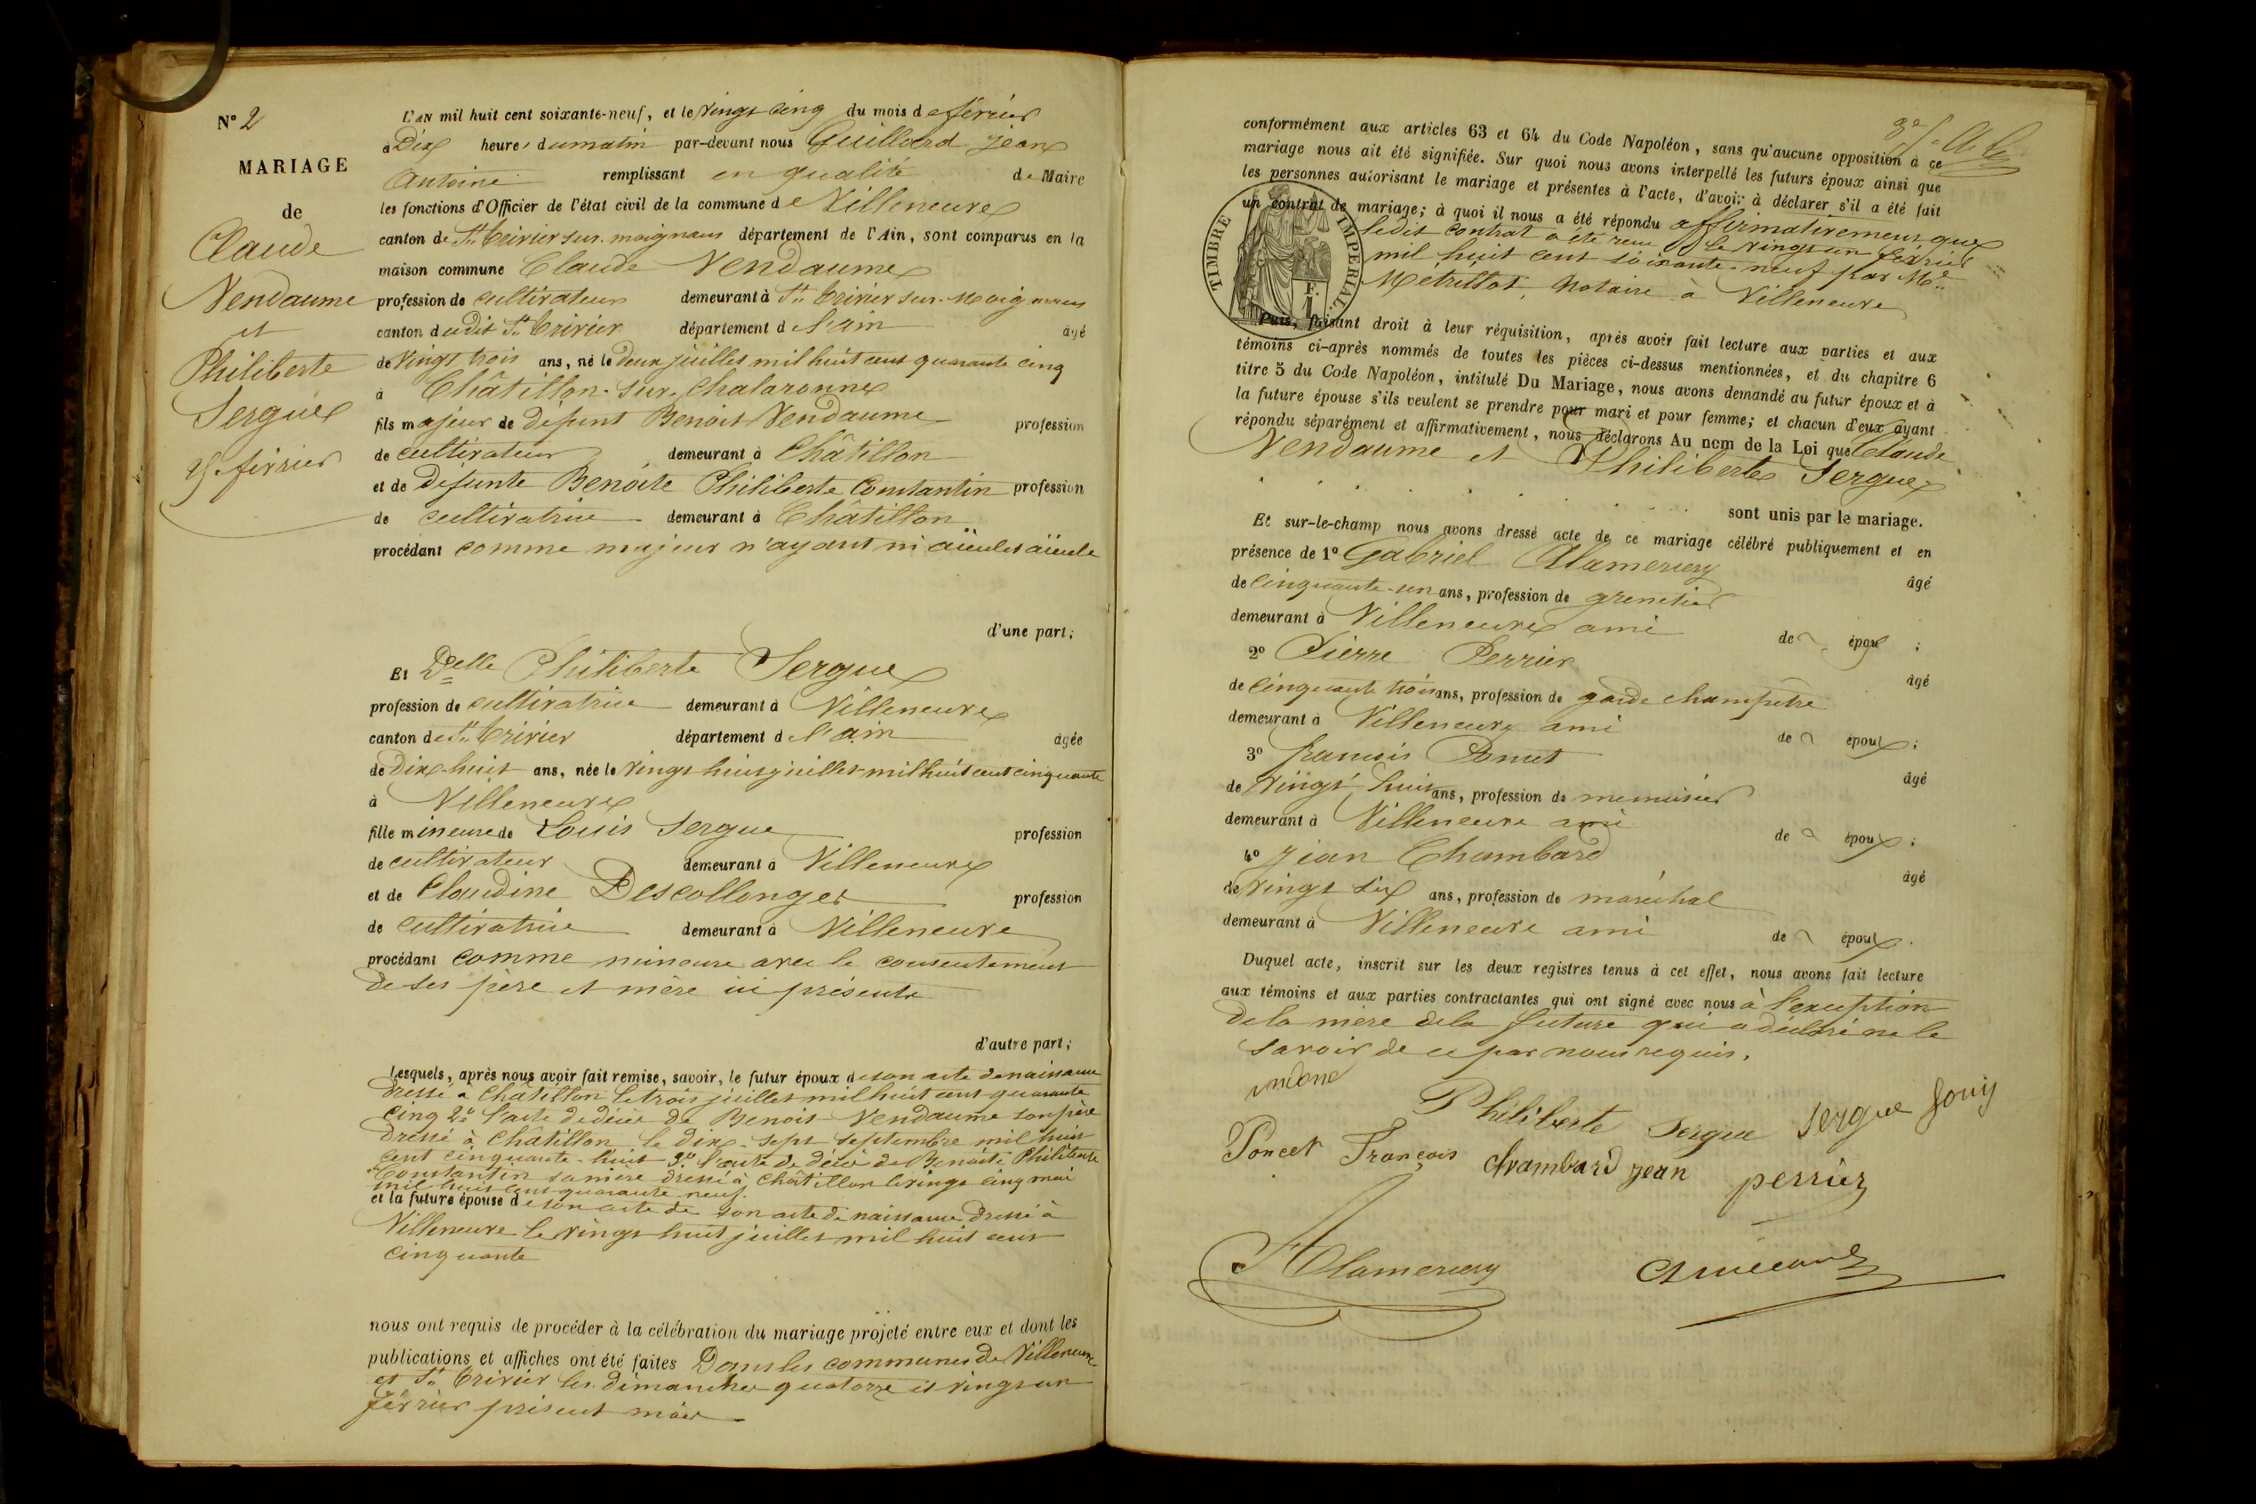 N° 2
MARIAGE
de
Claude
Vendaume
et
Philiberte
Sergue
25 février
L'AN mil huit cent soixante-neuf, et le vingt cinq du mois de février
à Dix heures du matin par-devant nous Guillard Jean
Antoine remplissant en qualité de Maire
les fonctions d'Officier de l'état civil de la commune de Villeneuve
canton de St Trivier sur moignans département de l'Ain, sont comparus en la
maison commune Claude Vendaume
profession de cultivateur demeurant à St Trivier sur Moignans
canton dudit St Trivier département de l'ain âgé
de vingt trois ans, né le deux juillet mil huit cent quarante cinq
à Châtillon-sur-Chalaronne
fils majeur de défunt Benoit Vendaume profession
de cultivateur demeurant à Châtillon
et de défunte Benoîte Philiberte Constantin profession
de cultivatrice demeurant à Châtillon
procédant comme majeur n'ayant ni aïeul et aïeule
d'une part;
Et Delle Philiberte Sergue
profession de cultivatrice demeurant à Villeneuve
canton de St Trivier département de l'ain âgée
de Dix huit ans, née le vingt huit juillet mil huit cent cinquante
à Villeneuve
fille mineure de Louis Sergue profession
de cultivateur demeurant à Villeneuve
et de Claudine Descollonges profession
de cultivatrice demeurant à Villeneuve
procédant comme mineure avec le consentement
de ses père et mère ici présents
d'autre part;
Lesquels, après nous avoir fait remise, savoir, le futur époux de son acte de naissance
dressé à Châtillon le trois juillet mil huit cent quarante
cinq 2° l'acte de décès de Benoit Vendaume son père
dressé à Châtillon le dix-sept septembre mil huit
cent cinquante-huit 3° l'acte de décès de Benoîte Philiberte
Constantin sa mère dressé à Châtillon le vingt cinq mai
mil huit cent quarante neuf.
et la future épouse de son acte de son acte de naissance dressé à
Villeneuve le vingt huit juillet mil huit cent
cinquante
nous ont requis de procéder à la célébration du mariage projeté entre eux et dont les
publications et affiches ont été faites Dans les communes de Villeneuve
et St Trivier les dimanches quatorze et vingt un
février présent mois
conformément aux articles 63 et 64 du Code Napoléon, sans qu'aucune opposition à ce
mariage nous ait été signifiée. Sur quoi nous avons interpellé les futurs époux ainsi que
les personnes autorisant le mariage et présentes à l'acte, d'avoir à déclarer s'il a été fait
un contrat de mariage; à quoi il nous a été répondu affirmativement que
ledit contrat a été reçu le vingt un février
mil huit cent soixante-neuf par Me
Métrillot, Notaire à Villeneuve
TIMBRE IMPÉRIAL
F.
1
Puis, faisant droit à leur réquisition, après avoir fait lecture aux parties et aux
témoins ci-après nommés de toutes les pièces ci-dessus mentionnées, et du chapitre 6
titre 5 du Code Napoléon, intitulé Du Mariage, nous avons demandé au futur époux et à
la future épouse s'ils veulent se prendre pour mari et pour femme; et chacun d'eux ayant
répondu séparément et affirmativement, nous déclarons Au nom de la Loi que Claude
Vendaume et Philiberte Sergue
sont unis par le mariage.
Et sur-le-champ nous avons dressé acte de ce mariage célébré publiquement et en
présence de 1° Gabriel Alamercery âgé
de cinquante-un ans, profession de grenetier
demeurant à Villeneuve ami de époux;
2° Pierre Perrier âgé
de cinquante trois ans, profession de garde champêtre
demeurant à Villeneuve ami de époux;
3° françois Poncet âgé
de vingt huit ans, profession de menuisier
demeurant à Villeneuve ami de époux;
4° Jean Chambard âgé
de vingt six ans, profession de maréchal
demeurant à Villeneuve ami de époux.
Duquel acte, inscrit sur les deux registres tenus à cet effet, nous avons fait lecture
aux témoins et aux parties contractantes qui ont signé avec nous à l'exception
de la mère de la future qui a déclaré ne le
savoir de ce par nous requis.
Philiberte Sergue Sergue Louis
Poncet François chambard jean perrier
Alamercery